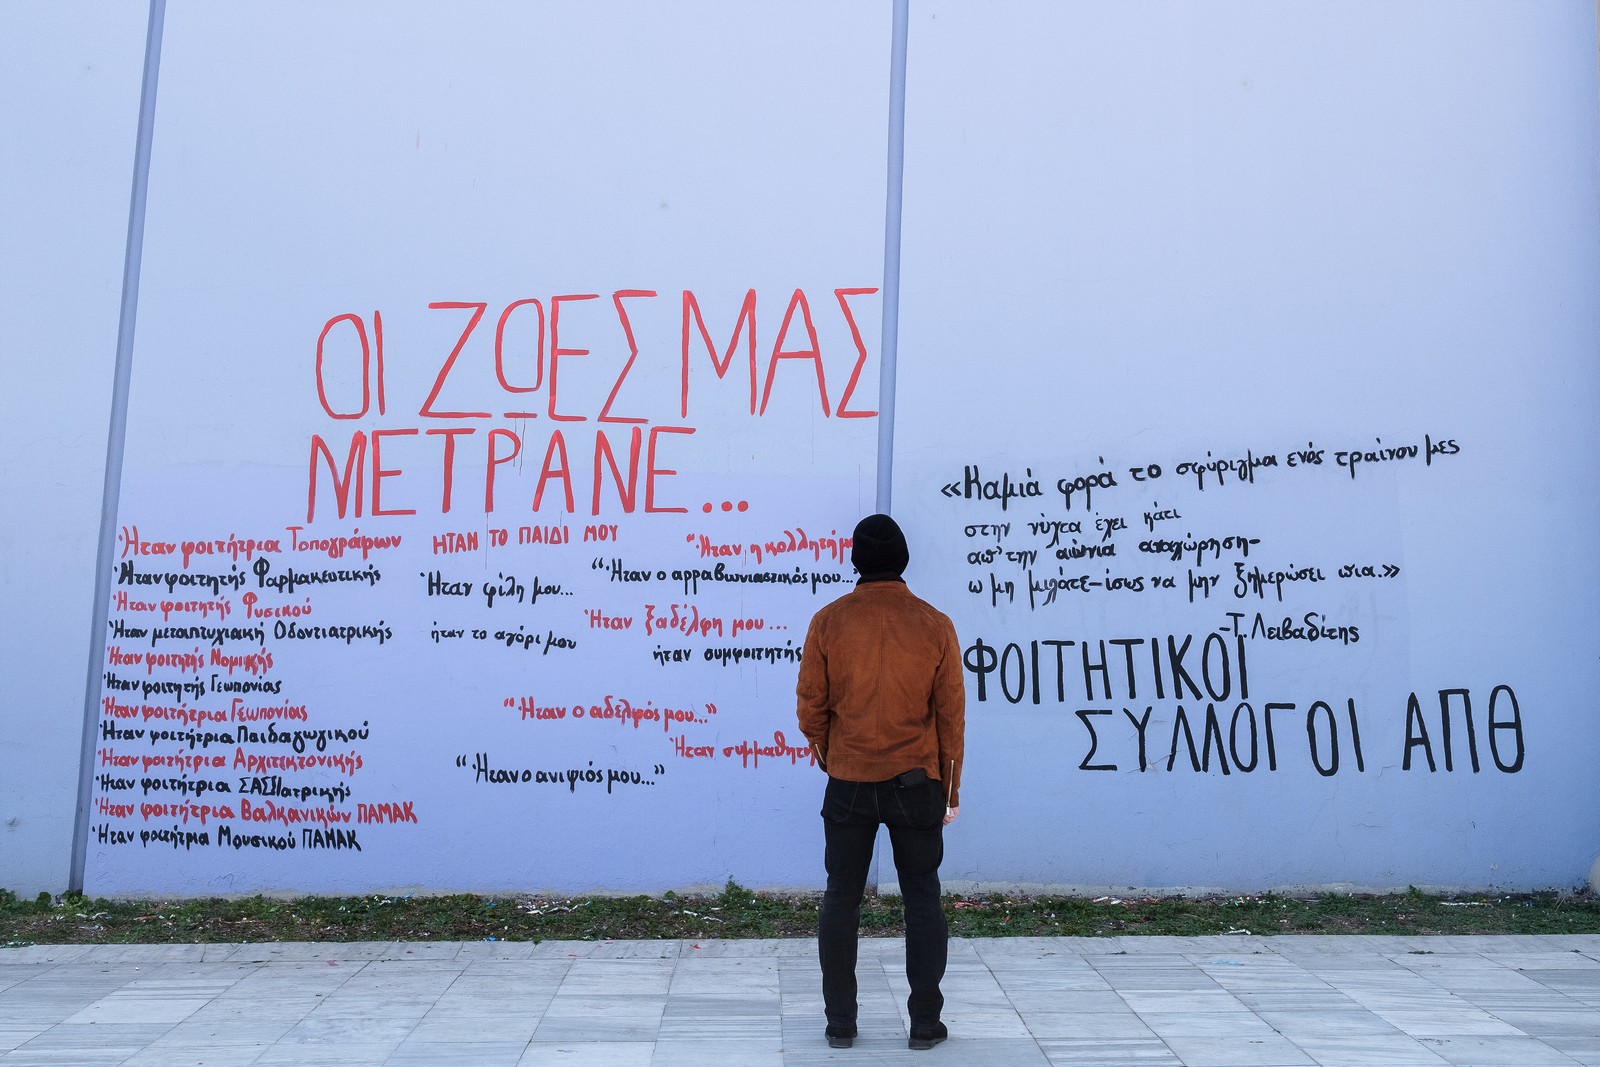 ΟΙ ΖΩΕΣ ΜΑΣ
ΜΕΤΡΑΝΕ...
Ήταν φοιτήτρια Τοπογράφων
Ήταν φοιτητής Φαρμακευτικής
Ήταν φοιτητής Φυσικού
Ήταν μεταπτυχιακή Οδοντιατρικής
Ήταν φοιτητής Νομικής
Ήταν φοιτητής Γεωπονίας
Ήταν φοιτήτρια Γεωπονίας
Ήταν φοιτήτρια Παιδαγωγικού
Ήταν φοιτήτρια Αρχιτεκτονικής
Ήταν φοιτήτρια Ιατρικής
Ήταν φοιτήτρια Βαλκανικών ΠΑΜΑΚ
Ήταν φοιτήτρια Μουσικού ΠΑΜΑΚ
ΗΤΑΝ ΤΟ ΠΑΙΔΙ ΜΟΥ
"Ήταν η κολλητή μ
"Ήταν ο αρραβωνιαστικός μου..."
Ήταν φίλη μου...
Ήταν ξαδέλφη μου...
ήταν το αγόρι μου
ήταν συμφοιτητής
"Ήταν ο αδελφός μου..."
Ήταν συμμαθητή
"Ήταν ο ανιψιός μου..."
«Καμιά φορά το σφύριγμα ενός τραίνου μες
στην νύχτα έχει κάτι
απ' την αιώνια αποχώρηση-
ω μη μιλάτε-ίσως να μην ξημερώσει πια.»
-Τ. Λειβαδίτης
ΦΟΙΤΗΤΙΚΟΙ
ΣΥΛΛΟΓΟΙ ΑΠΘ